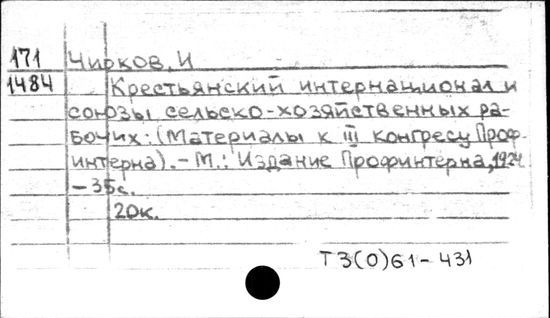 171 Чирков, И
1484 Крестьянский интернационал и
союзы сельско-хозяйственных ра-
бочих: (Материалы к III конгресу Проф-
интерна). - М.: Издание Профинтерна, 1924
- 35с.
20к.
Т3(0)61-431